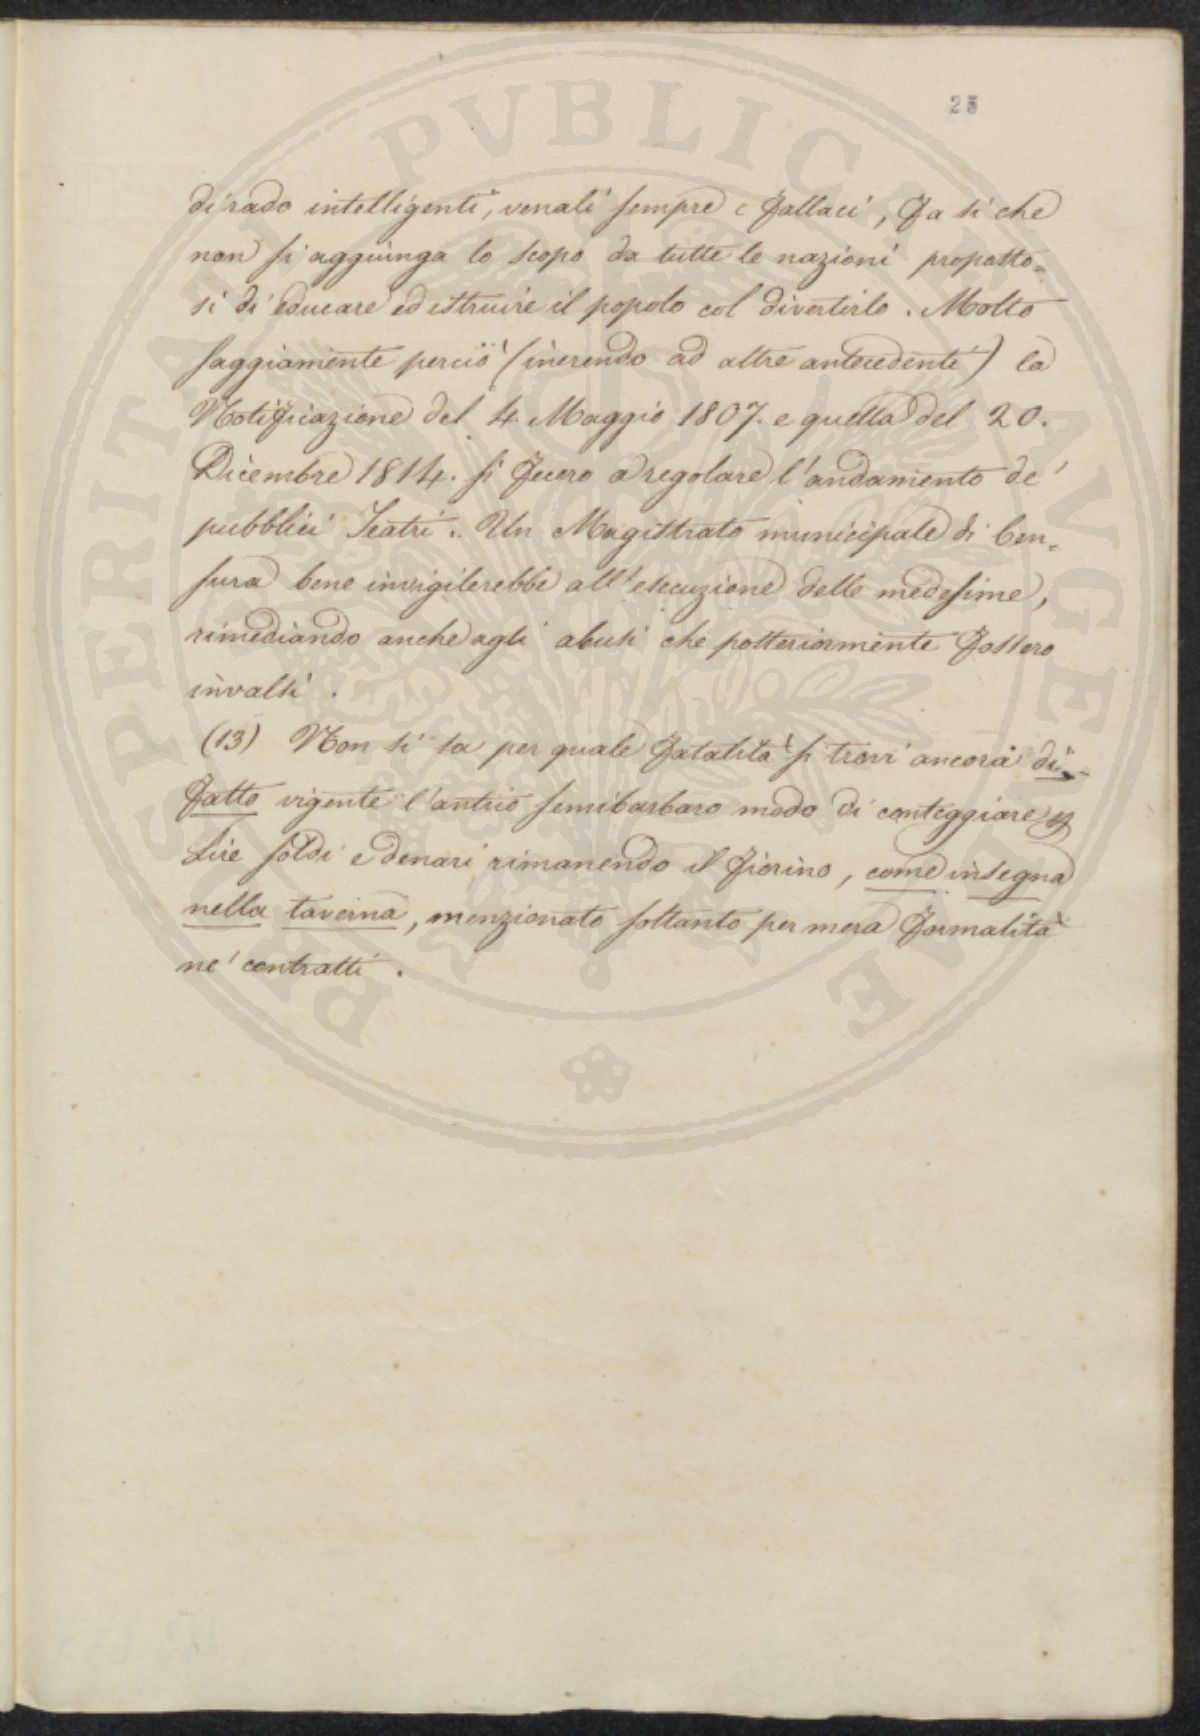 25
di rado intelligenti, venali sempre e fallaci, fa sì che
non si aggiunga lo scopo da tutte le nazioni propostto=
si di educare ed istruire il popolo col divertirlo. Molto
saggiamente perciò (inerendo ad altre antecedenti) la
Notificazione del 4. Maggio 1807. e quella del 20.
Dicembre 1814. si fecero a regolare l'andamento de'
pubblici Teatri. Un Magistrato municipale di Cen=
sura bene invigilerebbe all'esecuzione delle medesime,
rimediando anche agli abusi che posteriormente fossero
invalsi.
(13) Non si sa per quale fatalità si trovi ancora di
fatto vigente l'antico semibarbaro modo di conteggiare
Lire soldi e denari rimanendo il fiorino, come insegna
nella taverna, menzionato soltanto per mera formalità
ne' contratti.
PROSPERITAS PVBLICE AVGEAE